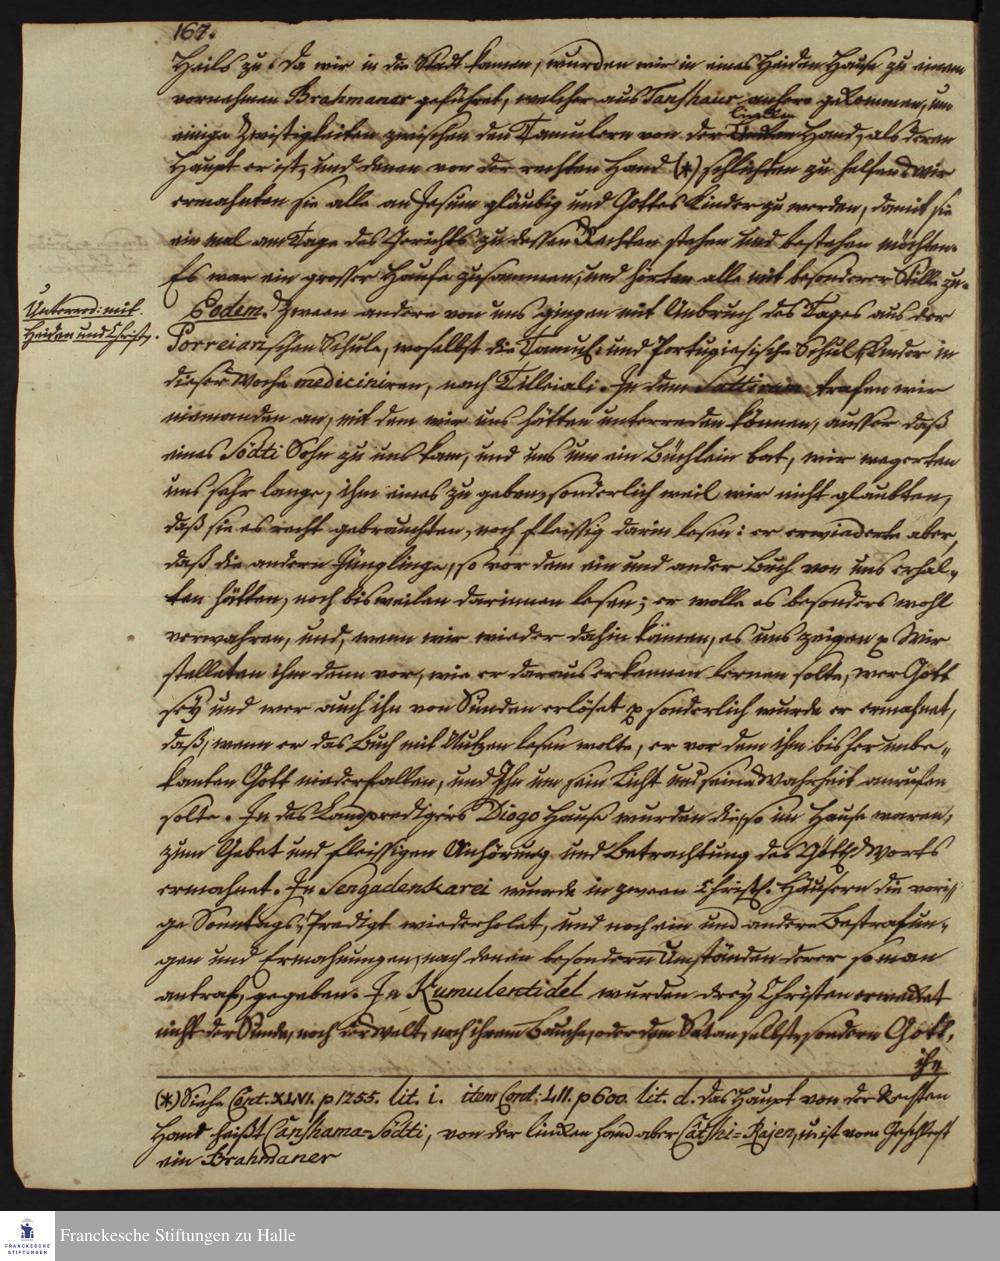 167.
Heils zu. Da wir in die Stadt kamen, wurden wir in eines Heiden Hause zu einem
vornehmen Brahmaner geführet, welcher aus Tanshaur anhero gekommen, um
linken
einige Zwistigkeiten zwischen den Tamulern von der Hand, als deren
Haupt er ist, und denen von der rechten Hand (*) schlichten zu helfen. Wir
ermahnten sie alle an Jesum gläubig und Gottes Kinder zu werden, damit sie
ein mal am Tage des Gerichts zu dessen Rechten stehen und bestehen möchten.
Es war ein grosser Haufe zusammen, und hörten alle mit besonderer Stille zu.
Unterred: mit
Heiden und Christ.
Eodem. Zween andere von uns gingen mit Anbruch des Tages aus der
Porreiarischen Schule, woselbst die Tamul. und Portugiesische Schul Kinder in
dieser Woche mediciniren, nach Tilleiali. In dem Sattiram trafen wir
niemanden an, mit dem wir uns hätten unterreden können, ausser daß
eines Södti Sohn zu uns kam, und uns um ein Büchlein bat, wir wegerten
uns sehr lange, ihm eines zu geben, sonderlich weil wir nicht glaubten,
daß sie es recht gebrauchten, noch fleissig darin lesen: er erwiederte aber,
daß die andern Jünglinge, so vor dem ein und ander Buch von uns erhal-
ten hätten, noch bisweilen darinnen lesen; er wolle es besonders wohl
verwahren, und, wenn wir wieder dahin kämen, es uns zeigen p Wir
stelleten ihm denn vor, wie er daraus erkennen lernen solte, wer Gott
sey und wer auch ihn von Sünden erlöset p sonderlich wurde er ermahnet,
daß, wenn er das Buch mit Nutzen lesen wolte, er vor dem ihm bisher unbe-
kanten Gott niederfallen, und Ihn um sein Licht und seine Wahrheit anrufen
solte. In des Landpredigers Diogo Hause wurden die, so im Hause waren,
zum Gebet und fleissigen Anhörung und Betrachtung des Göttl. Worts
ermahnet. In Sengadenkarei wurde in zween Christl. Häusern die vori-
ge Sonntags-Predigt wiederholet, und noch ein und andere Bestrafun-
gen und Ermahnungen, nach denen besondern Umständen derer so man
antraf, gegeben. In Kumulentidel wurden drey Christen erwecket
nicht der Sünde, noch der Welt, noch ihrem Bauche, oder dem Satan selbst, sondern Gott,
ihr
(*) Siehe Cont. XLVI. p 1255. lit. i. item Cont: LII. p 600. lit. d. Das Haupt von der Rechten
Hand heißt Canshama-Södti, von der linken Hand aber Catshi-Rajen, u. ist vom Geschlecht
ein Brahmaner
FRANCKESCHE
STIFTUNGEN
Franckesche Stiftungen zu Halle